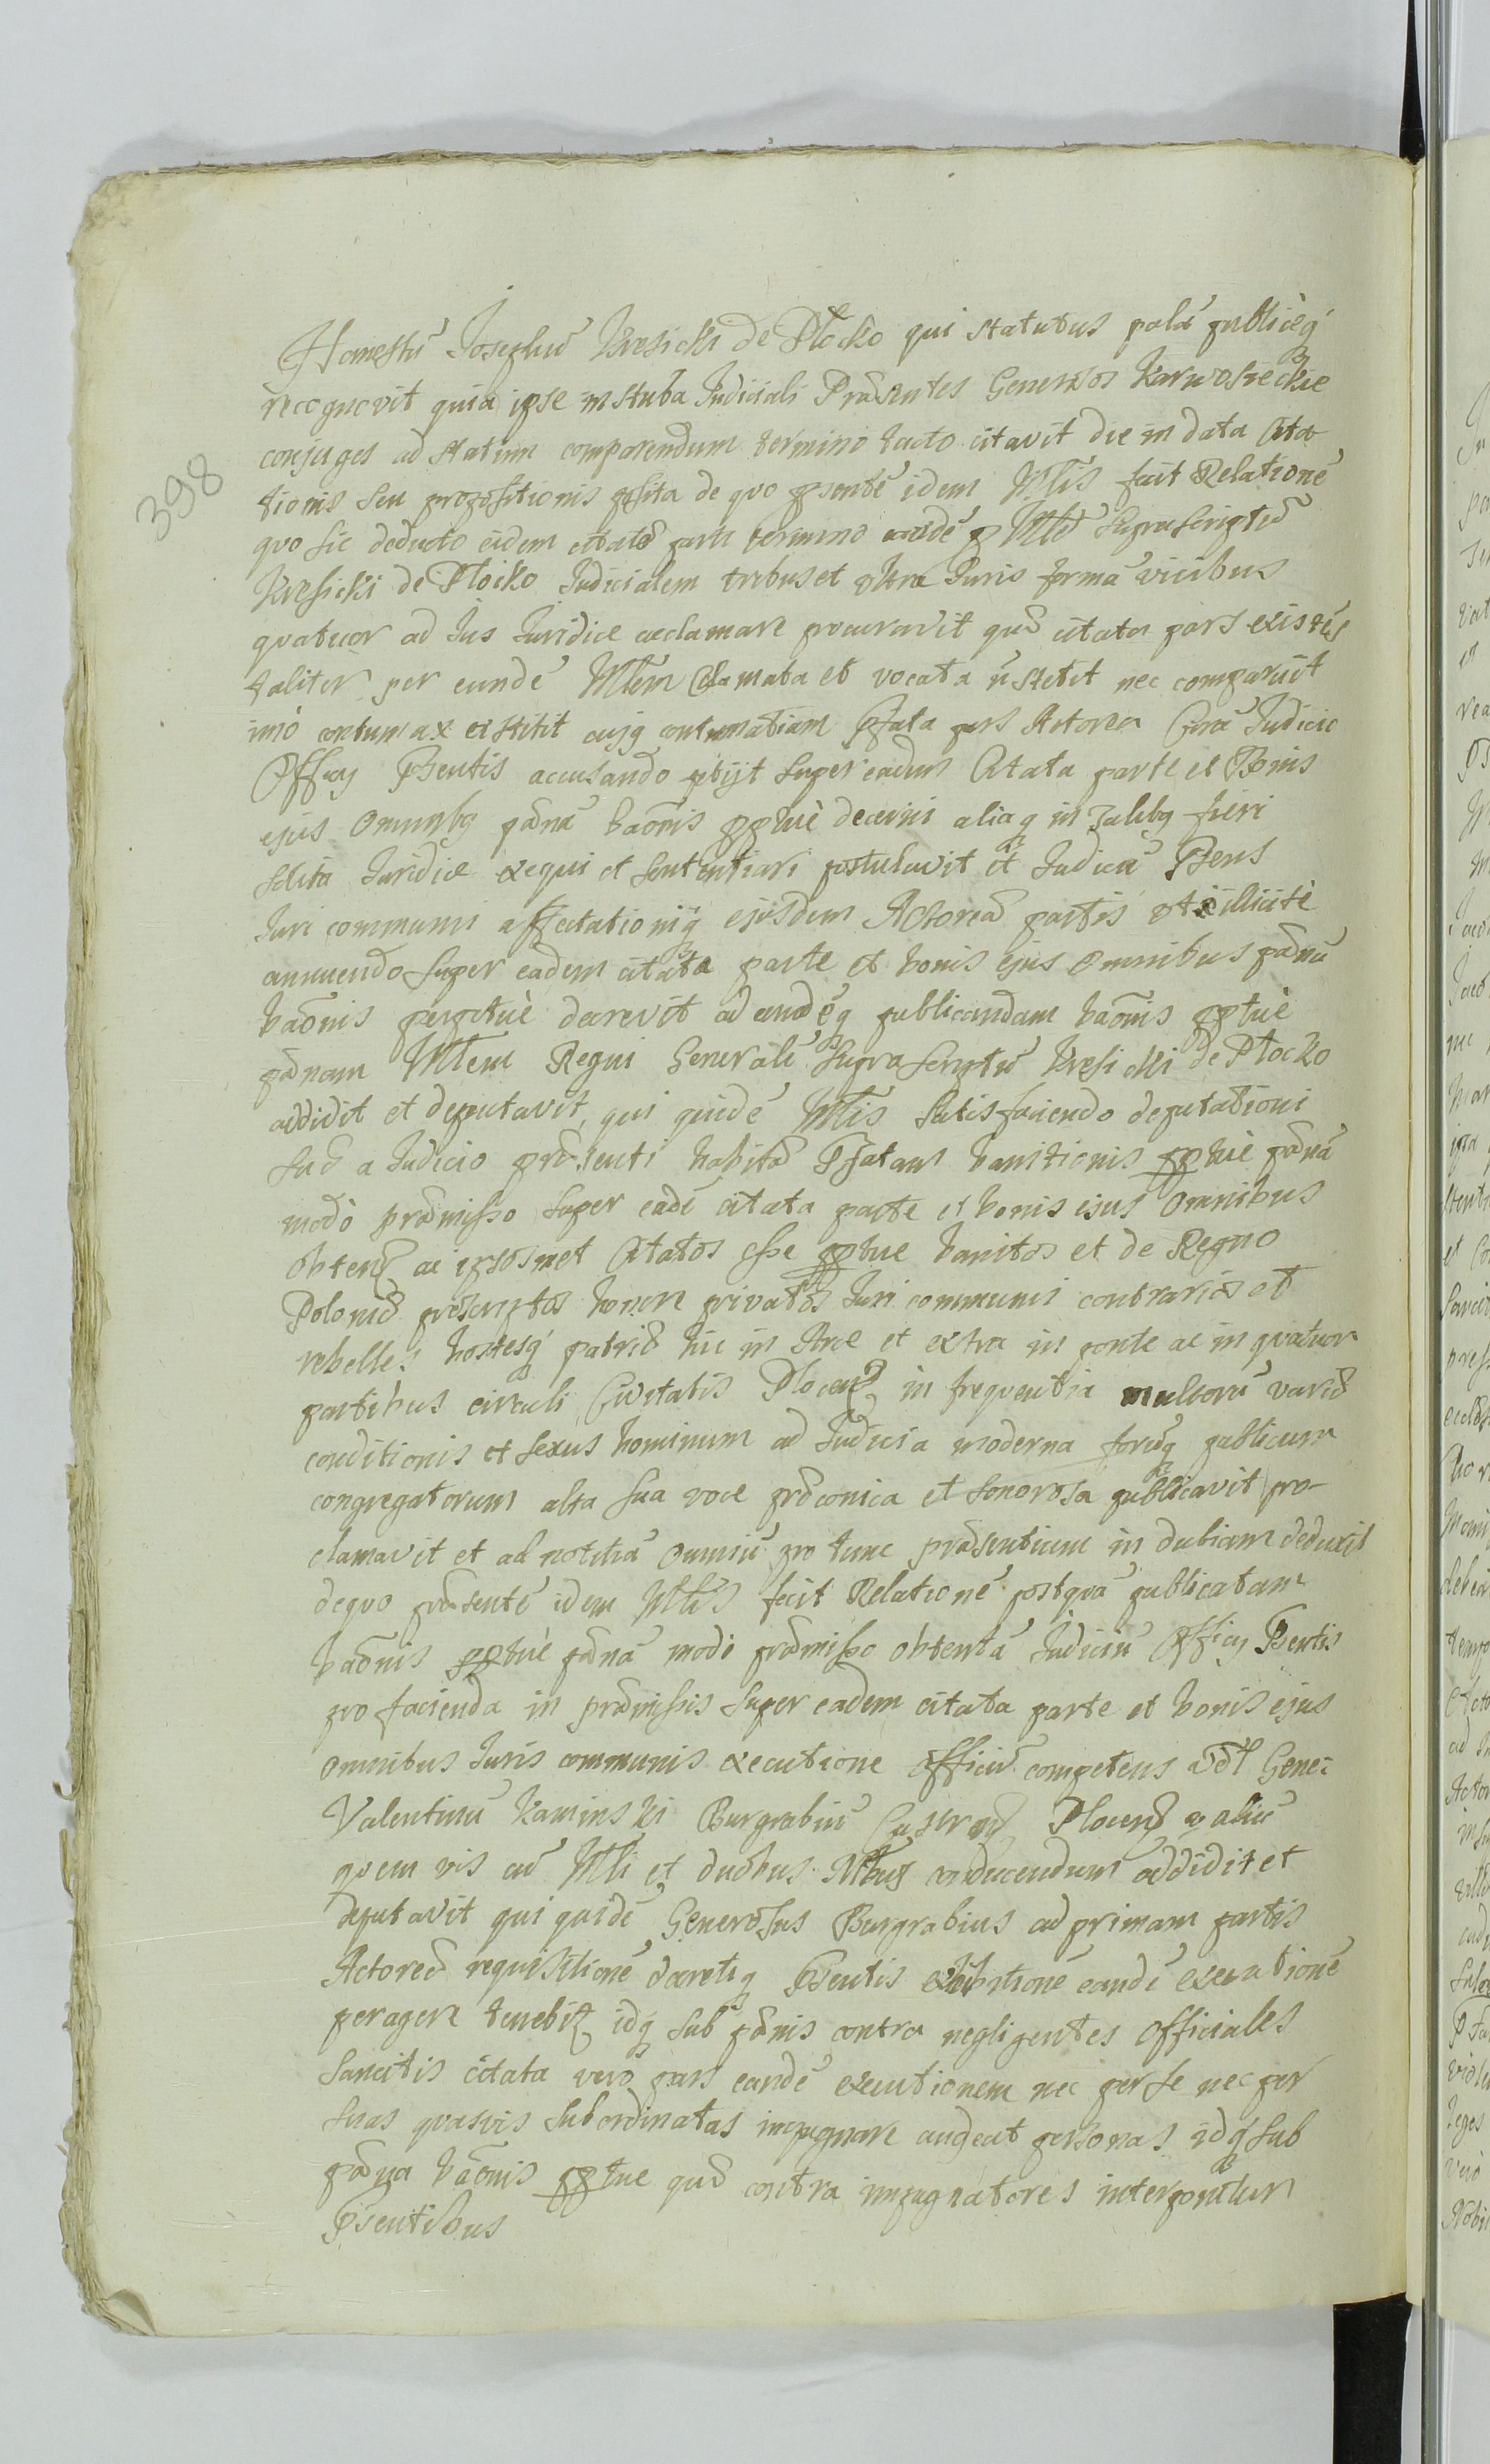 Honestū Josephū Kresicki de Plocko qui statutus palā publicèq́
recognovit quia ipse in stuba Judiciali Præsentes Generosos Karwosieckie
conjuges ad statum comparendum termino tacto citavit die in data Cita
tionis seu propositionis posita de quo psentē idem Mtlis fecit Relationē
quo sic deducto eidem citatæ parti termino eundē p Mtlē supra scriptū
Kresicki de Plocko Judicialem tribus et ultra Juris formā vicibus
quatuor ad Jus Juridice acclamare procuravit quæ citata pars existēs
taliter per eundē Mtlem clamata et vocata ñ stetit nec comparuit
imò contumax exstitit cujq contumatiam Pfata pars Actorea Corā Judicio
Officij Psentis accusando ptijt super eadem Citata parte et Bonis
ejus Omnibq pænā baõnis pptuè decerni aliaq in talibq fieri
solita Juridice exequi et sententiari postulavit et Judiciū Psens
Juri communi affectationiq́ ejusdem Actoreæ partis uti illicite
annuendo super eadem citata parte et bonis ejus Omnibus pænā
baõnis perpetuè decrevit ad eundēq publicandam baõnis pptuè
pænam Mtlem Regni Generalē supra scriptū Kresicki de Plocko
addidit et deputavit, qui quidē Mtlis satisfaciendo deputationi
suæ a Judicio præsenti habitæ Pfatam banitionis pptuè pænā
modò præmisso super eadē citata parte et bonis ejus Omnibus
obtenq ac ipsosmet Citatos esse pptue banitos et de Regno
Poloniæ proscriptos honore privatos Juri communi contrarios et
rebelles hostesq́ patriæ hic in Arce et extra in ponte ac in quatuor
partibus circuli Civitatis Plocenq in frequentia multorū variæ
conditionis et sexus hominum ad Judicia moderna forūq publicum
congregatorum alta sua voce præconica et sonorosa publicavit pro-
clamavit et ad notitiā Omniū pro tunc præsentium in dubiam deduxit
dequo præsentē idem Mtlis fecit Relationē postquā publicatam
baõnis pptuè pænā modò præmisso obtentā Judiciū Officij Psentis
pro facienda in præmissis super eadem citata parte et bonis ejus
omnibus Juris communis executione Officiū competens vdl Gene:
Valentinū Kaminski Burgrabiū Castren Plocenq v aliū
quem vis cū Mtli et duobus Nbus conducendum addidit et
deputavit qui quidē Generosus Burgrabius ad primam partis
Actoreæ requisitionē decretiq Psentis exhibitionē eandē executionē
peragere tenebiꝶ idq sub pænis contra negligentes Officiales
sancitis citata verò pars eandē executionem nec per se nec per
suas quasvis subordinatas impugnare audeat personas idq́ sub
pæna baõnis pptue quæ contra impugnatores interponitur
Psentibus
398